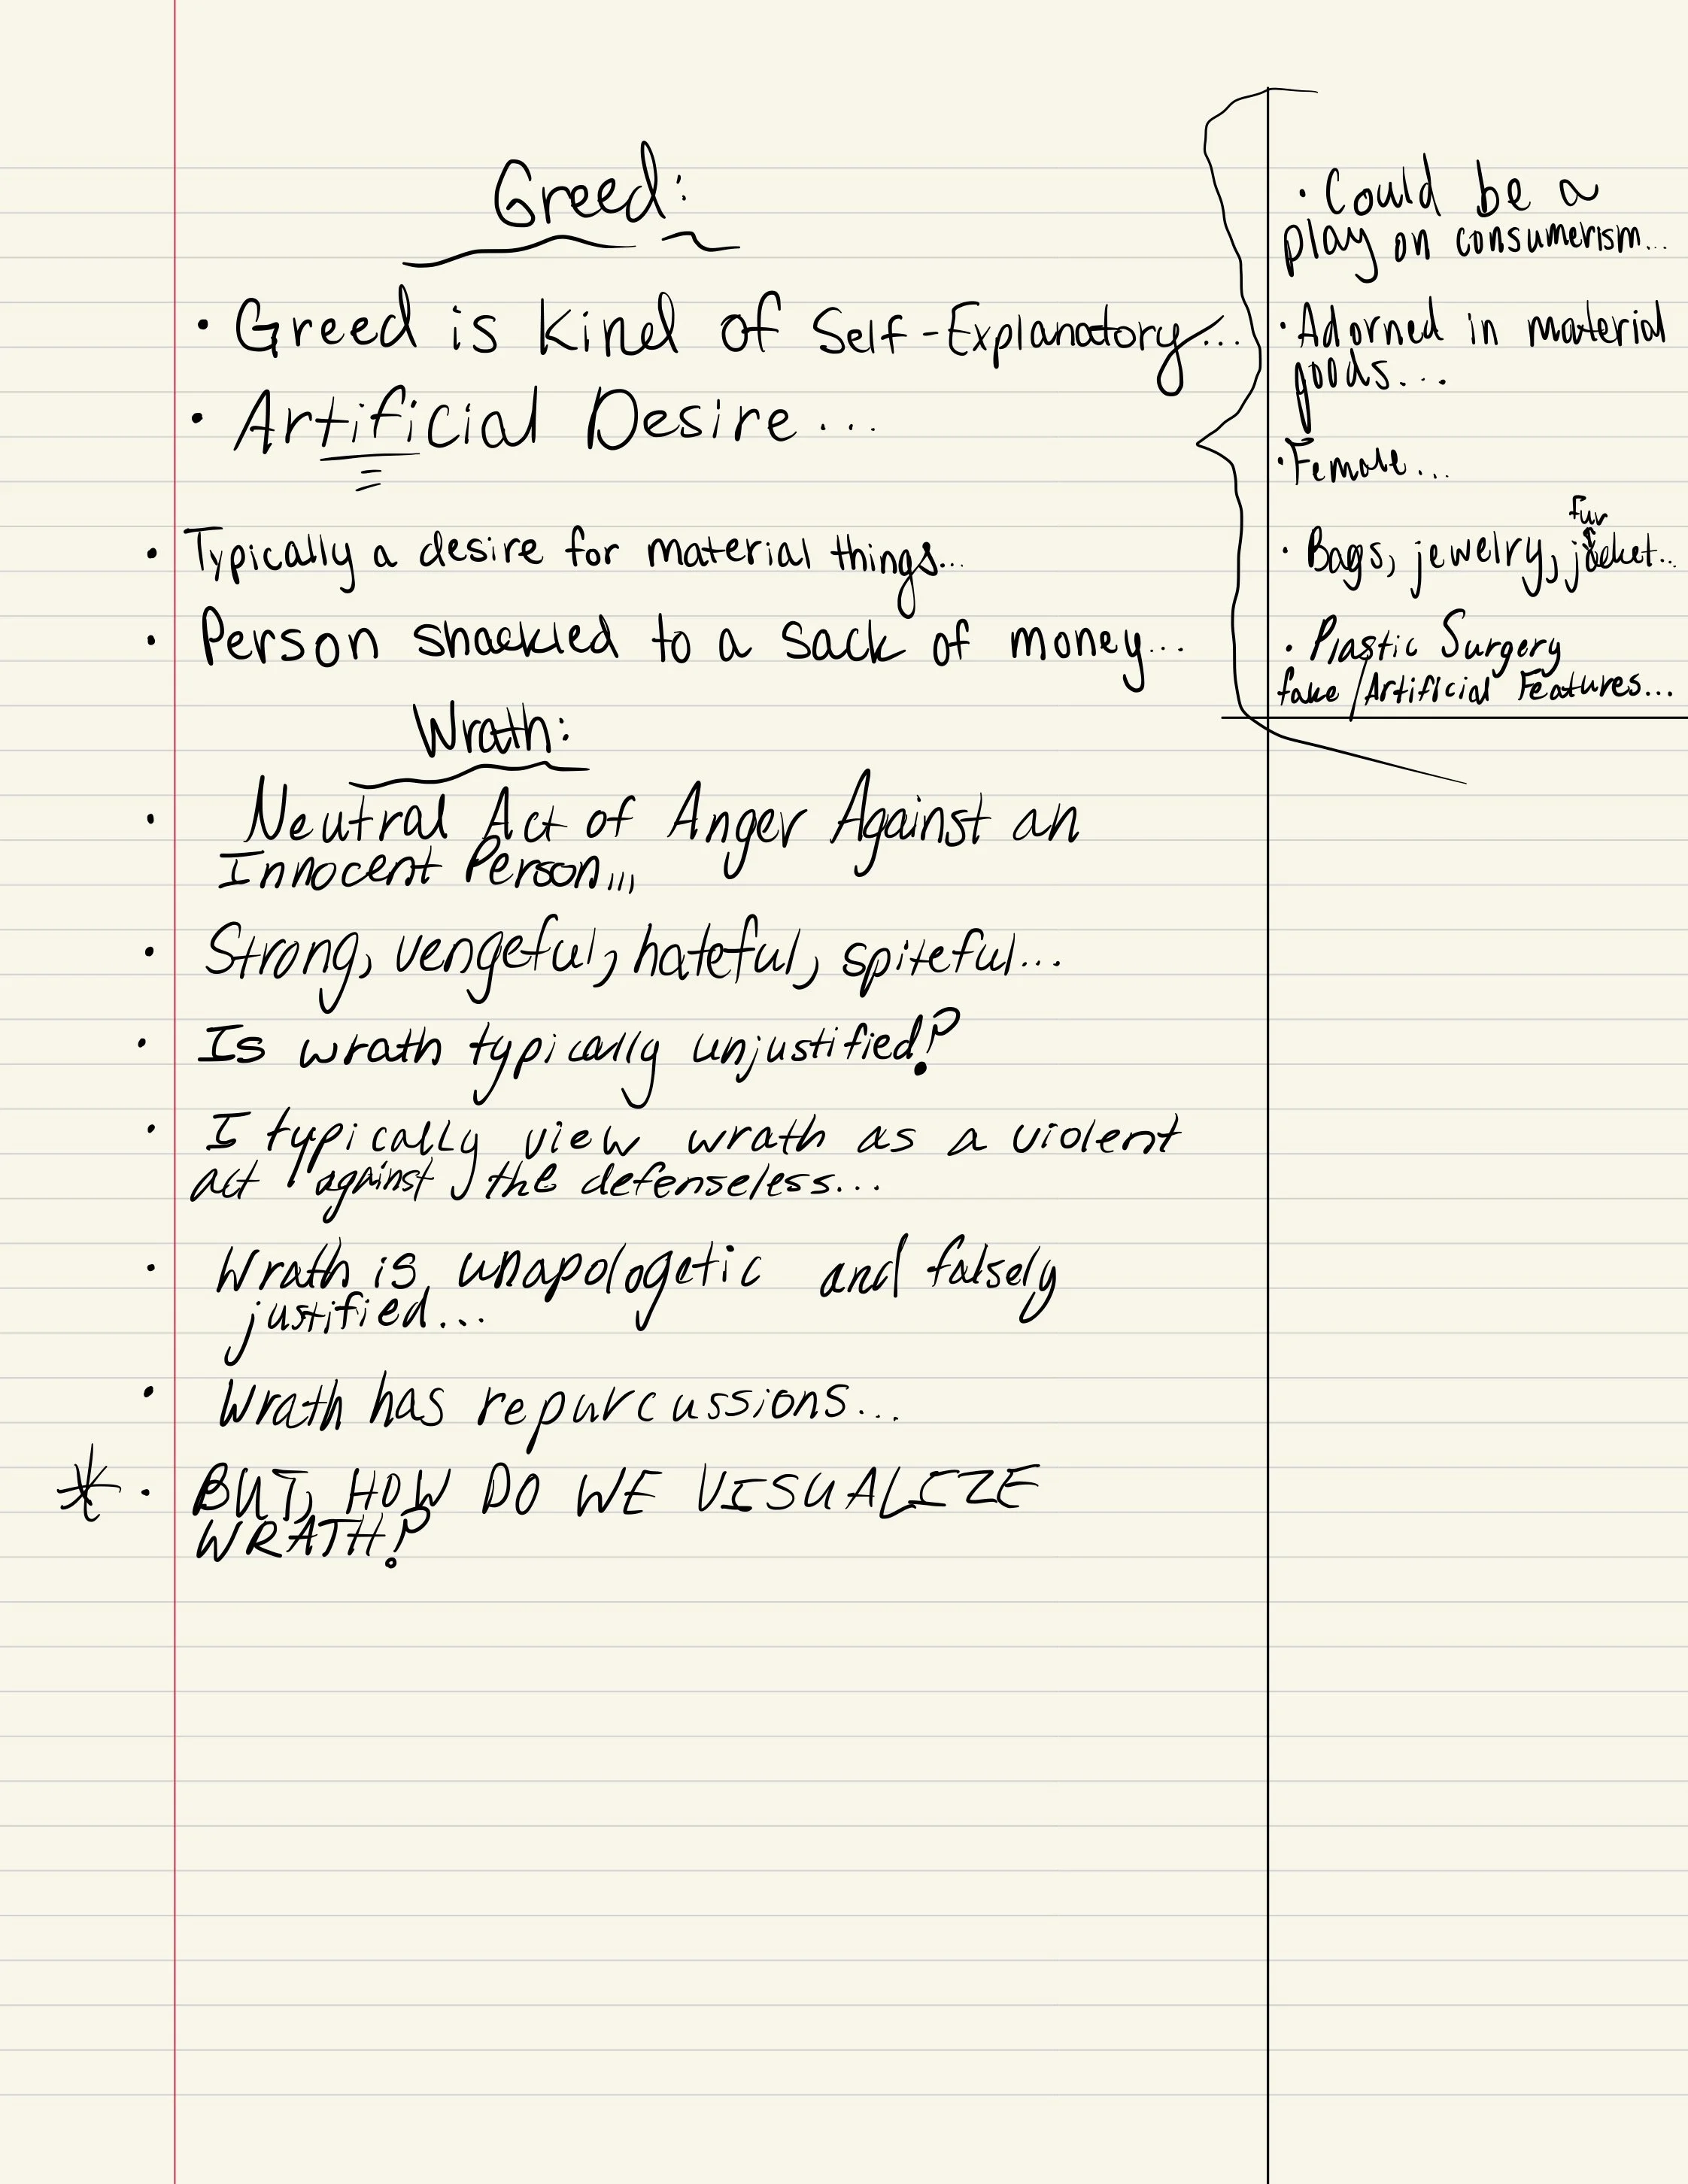 Greed:
• Greed is Kind of Self-Explanatory...
• Artificial Desire...
• Typically a desire for material things...
• Person shackled to a sack of money...
• Could be a
play on consumerism...
• Adorned in material
goods...
• Female...
fur
• Bags, jewelry, jacket...
• Plastic Surgery
fake / Artificial Features...
Wrath:
• Neutral Act of Anger Against an
Innocent Person,,,
• Strong, vengeful, hateful, spiteful...
• Is wrath typically unjustified?
• I typically view wrath as a violent
act against the defenseless...
• Wrath is unapologetic and falsely
justified...
• Wrath has repurcussions...
* • BUT, HOW DO WE VISUALIZE
WRATH?